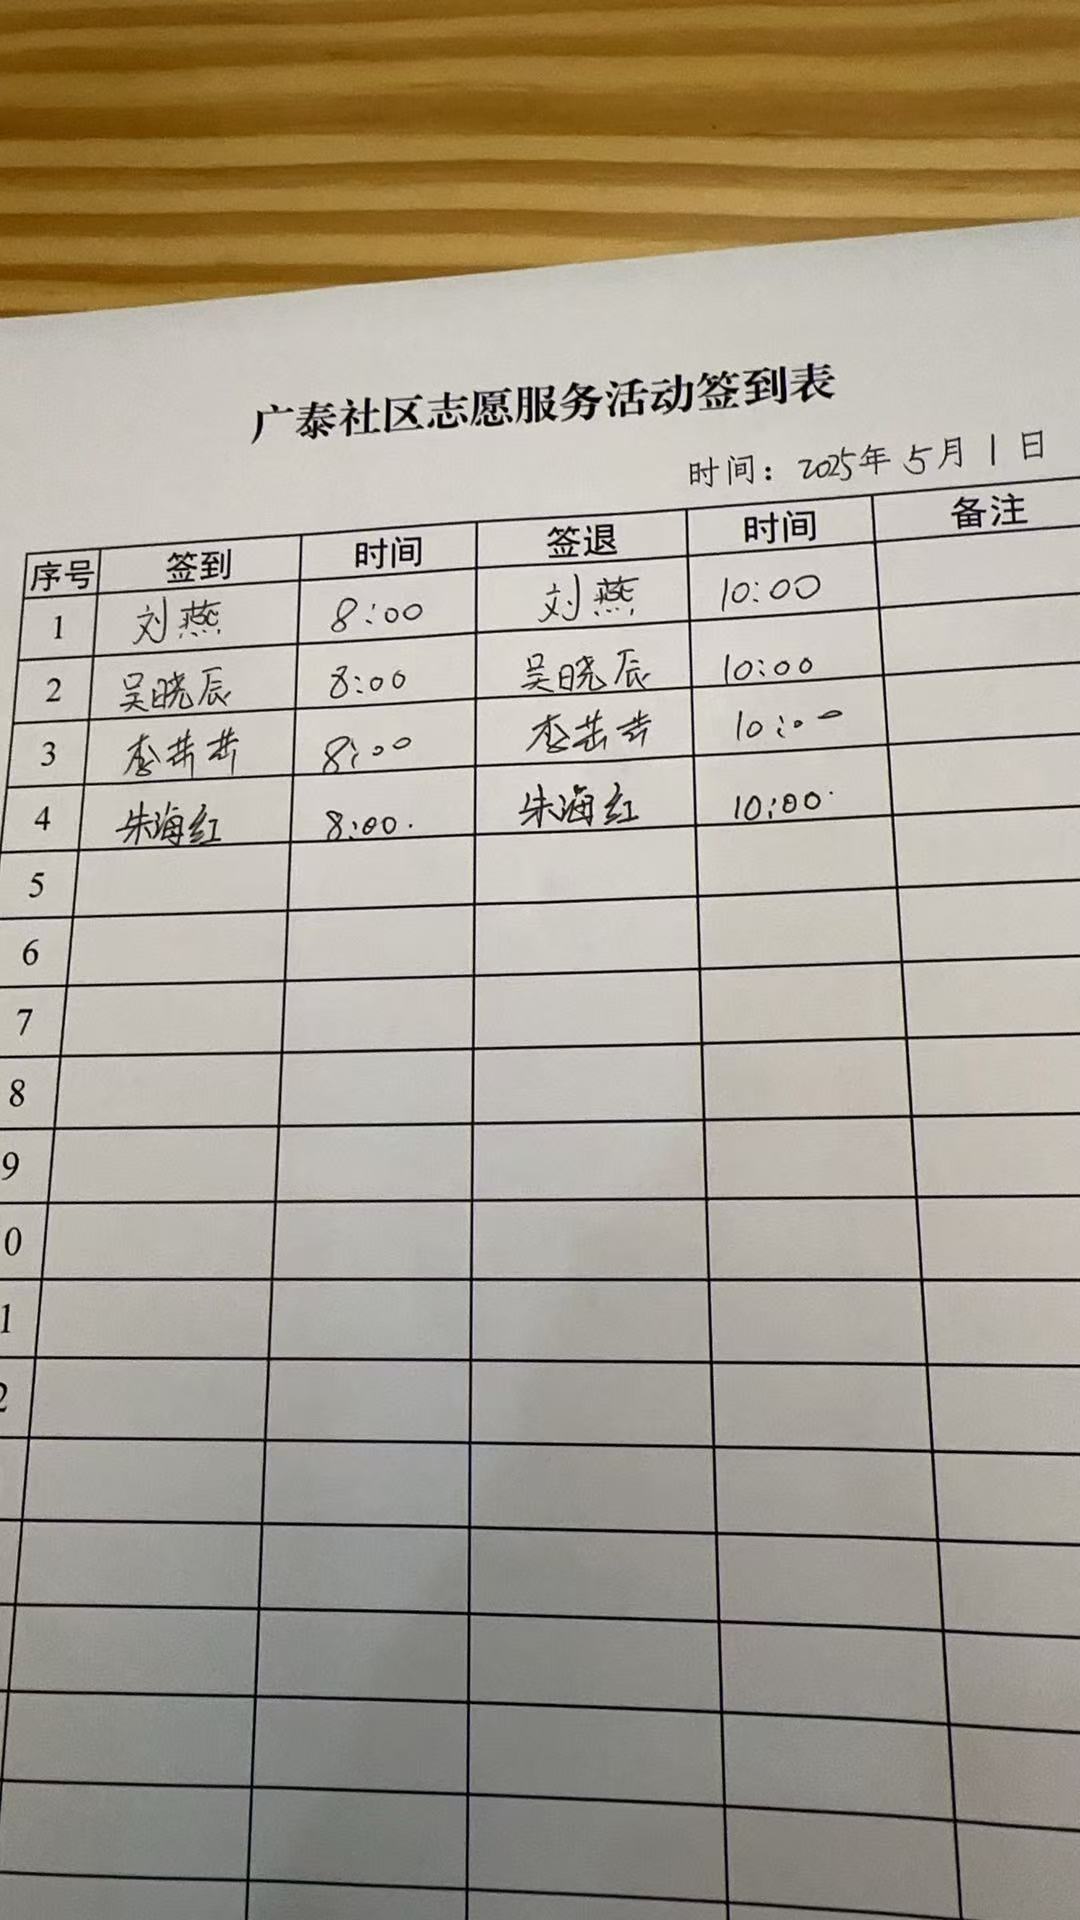 广泰社区志愿服务活动签到表
时间：2025年5月1日
序号 签到 时间 签退 时间 备注
1 刘燕 8:00 刘燕 10:00
2 吴晓辰 8:00 吴晓辰 10:00
3 李 8:00 李 10:00
4 朱海红 8:00. 朱海红 10:00.
5
6
7
8
9
0
1
2